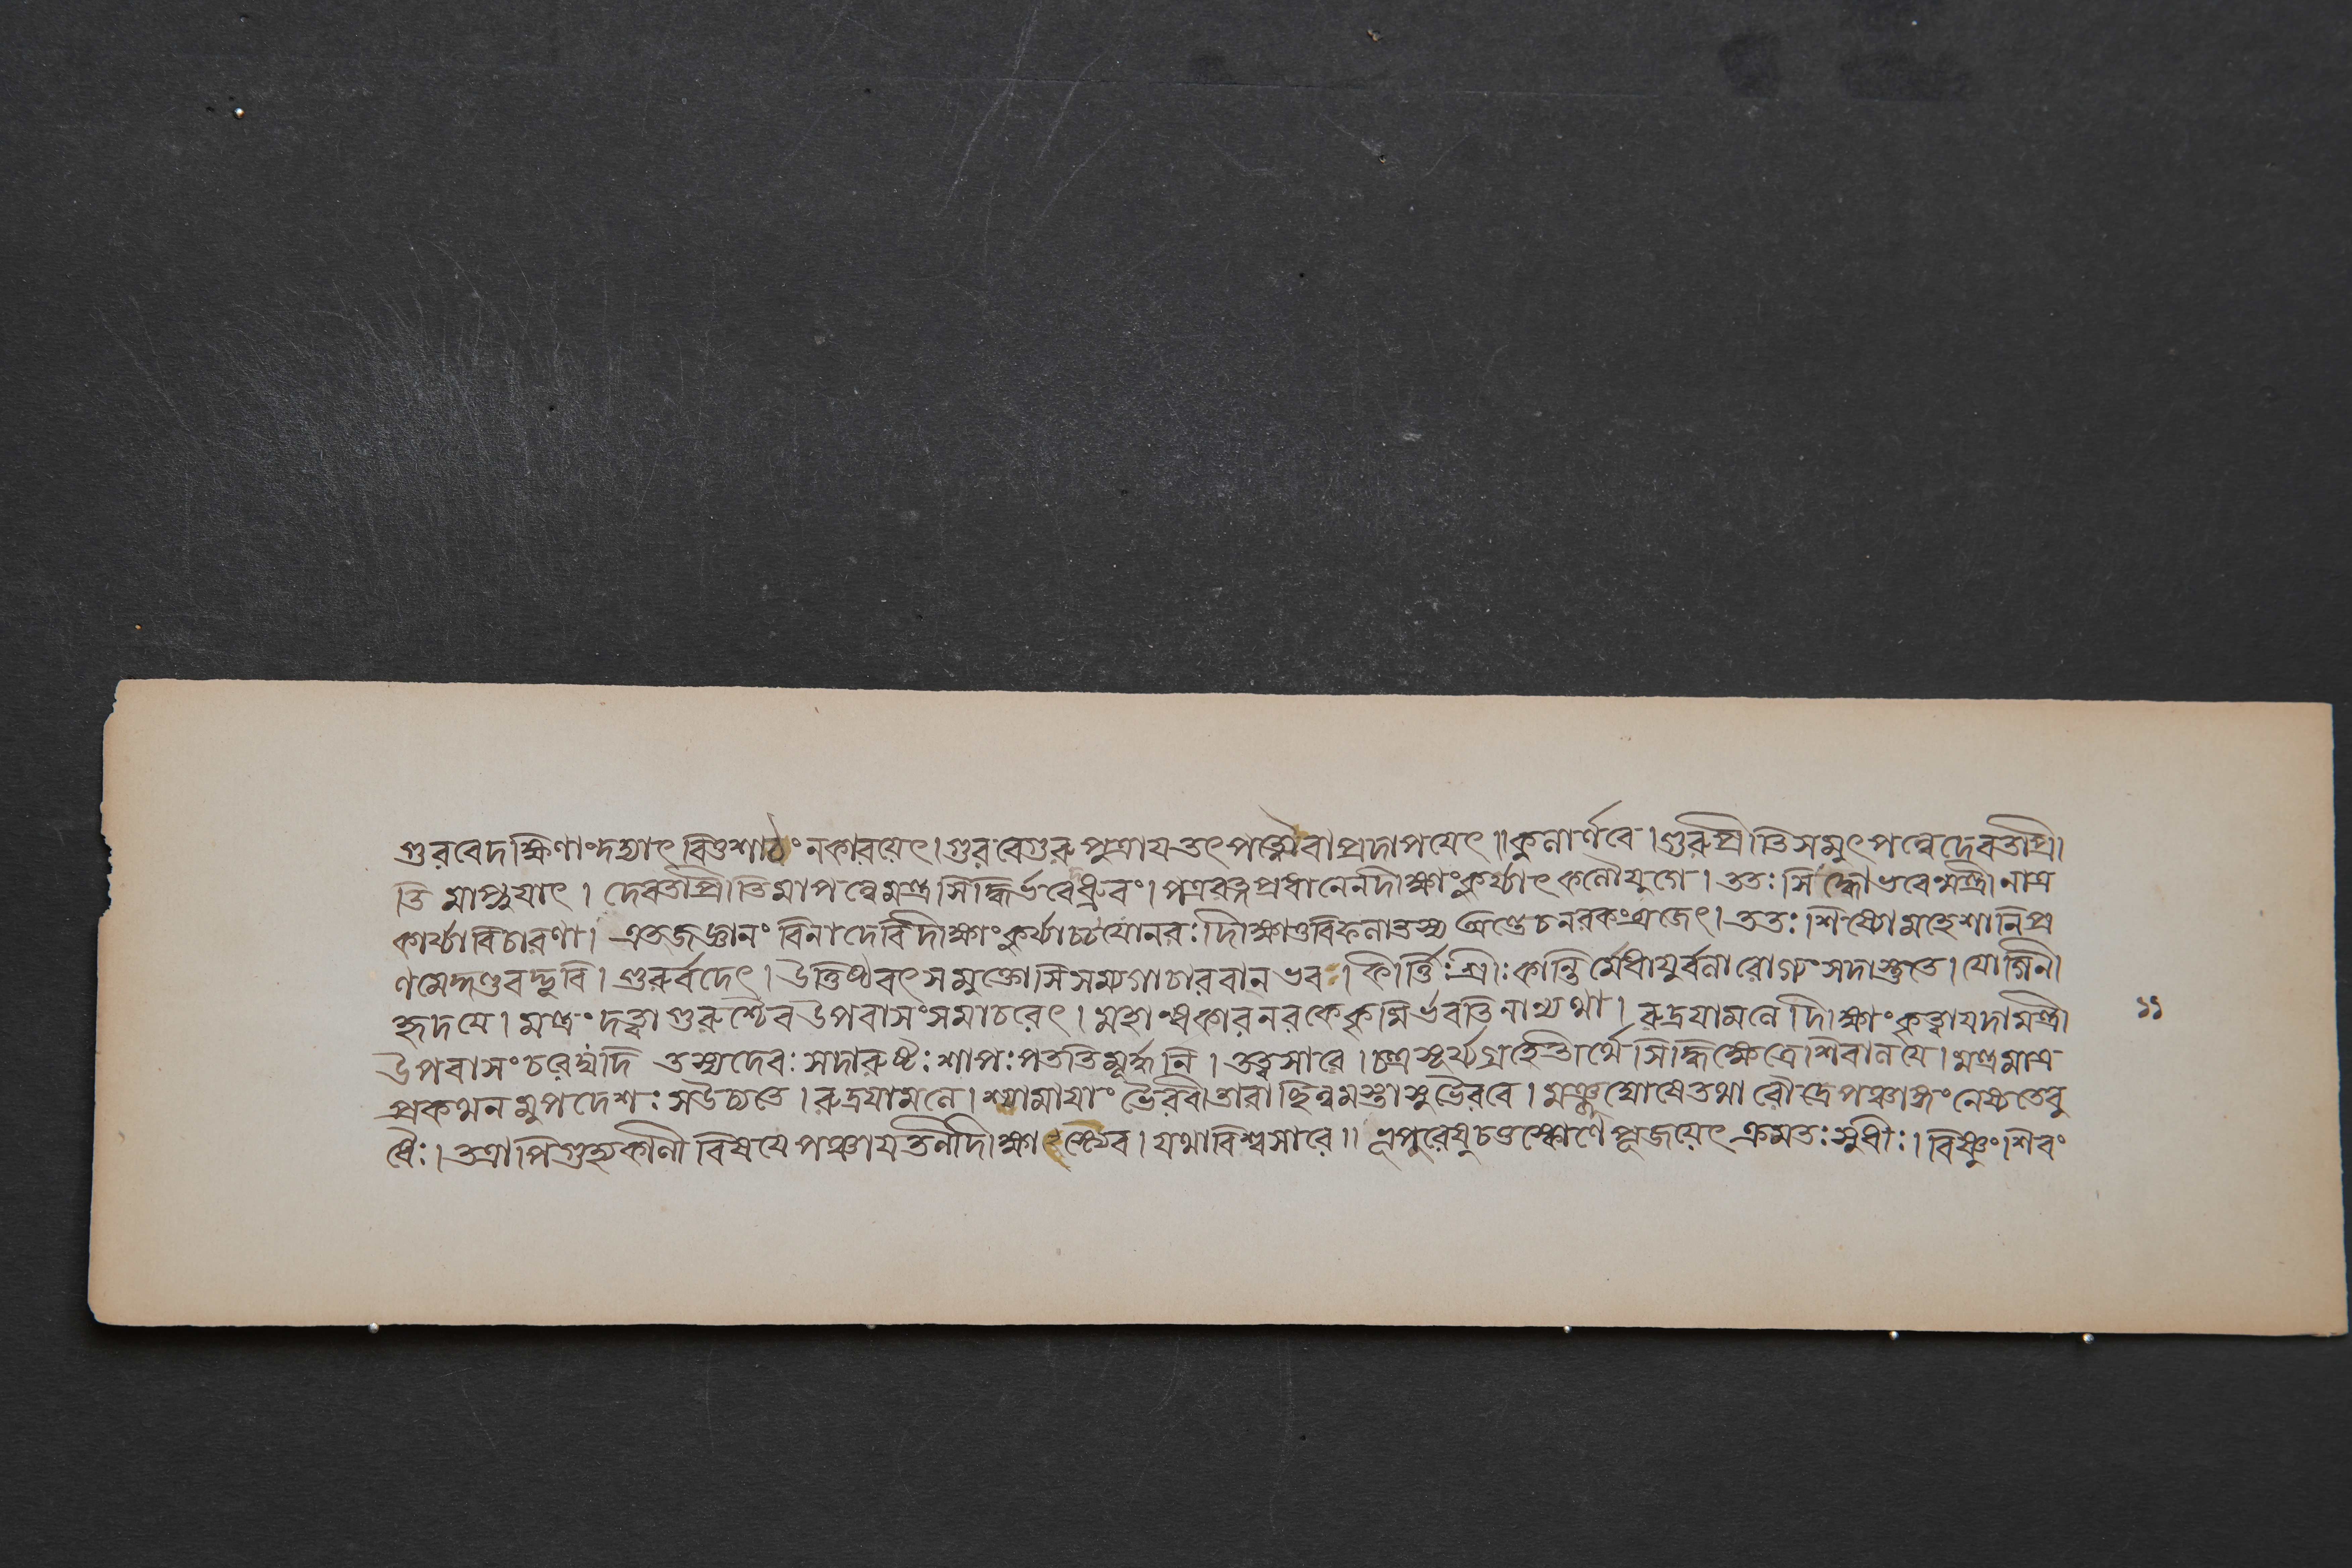 গুরবেদক্ষিণাংদদ্যাৎ বিত্তশাঠ্যং নকারয়েৎ।গুরবেগুরুপুত্রায় তৎপত্ন্যৈবাপ্রদাপয়েৎ॥কুলার্ণবে।গুরুপ্রীতিসমুৎপন্নেদেবতাপ্রী
তিমাপ্নুয়াৎ। দেবতাপ্রীতিমাপন্নেমন্ত্রসিদ্ধির্ভবেধ্রুবং।পত্ররঙ্গপ্রধানেনদীক্ষাংকুর্য্যাৎকলৌযুগে।ততঃসিদ্ধোভবেন্মন্ত্রীনাত্র
কার্য্যাবিচারণা। এতজজ্ঞানং বিনাদেবিদীক্ষাংকুর্য্যাচ্চযোনরঃদীক্ষাওবিফলাতস্য অণ্ডেচনরকংব্রজেৎ।ততঃশিষ্যোমহেশানিপ্র
ণমেদ্দণ্ডবদ্ভুবি।গুরুর্বদেৎ।উত্তিষ্ঠবৎসমুক্তোসিসম্যগাচারবানভব।কীর্ত্তিঃশ্রীঃকান্তির্মেধায়ুর্বলারোগ্যংসদাস্তুতে।যোগিনী
হৃদয়ে।মন্ত্রংদত্ত্বাগুরুশ্চৈবউপবাসংসমাচরেৎ।মহান্ধকারনরকেকৃমির্ভবতিনান্যথা।রুদ্রযামলেদীক্ষাংকৃত্বাযদামন্ত্রী ১১
উপবাসংচরেদ্যদি তস্যদেবঃসদারুষ্টঃশাপঃপততিমূর্দ্ধনি।তত্ত্বসারে।চন্দ্রসূর্য্যগ্রহেতীর্থেসিদ্ধিক্ষেত্রেশিবালয়ে।মন্ত্রমাত্র
প্রকথনমুপদেশঃসউচ্যতে।রুদ্রযামলে।শ্যামায়াংভৈরবীতারাছিন্নমস্তাসুভৈরবে।মঞ্জুঘোষেতথারৌদ্রেপঞ্চাঙ্গংনেষ্যতেবু
ধৈঃ।তত্রাপিগুহ্যকালীবিষয়েপঞ্চায়তনীদীক্ষা যথাবিশ্বসারে॥ সুচতুষ্কোণেপূজয়েৎক্রমতঃসুধীঃ।বিষ্ণুংশিবং